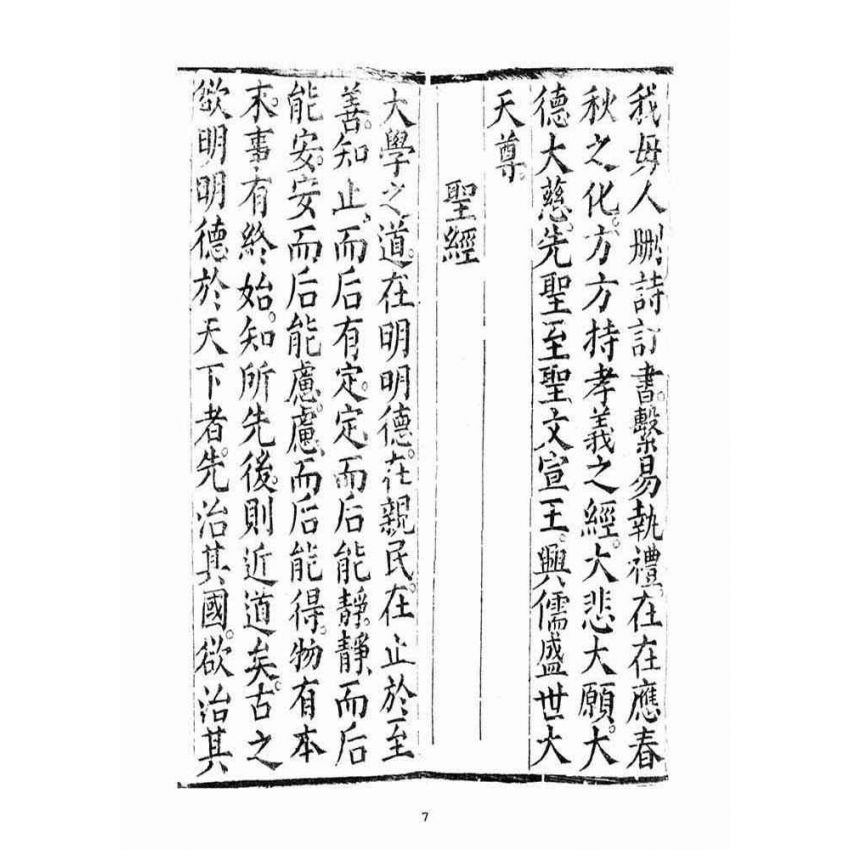 我毋人刪詩訂書。繫易執禮。在在應春
秋之化。方方持孝義之經。大悲大願。大
德大慈。先聖至聖文宣王。興儒盛世大
天尊。
聖經
大學之道。在明明德。在親民。在止於至
善。知止而后有定。定而后能靜。靜而后
能安。安而后能慮。慮而后能得。物有本
末。事有終始。知所先後。則近道矣。古之
欲明明德於天下者。先治其國。欲治其
7